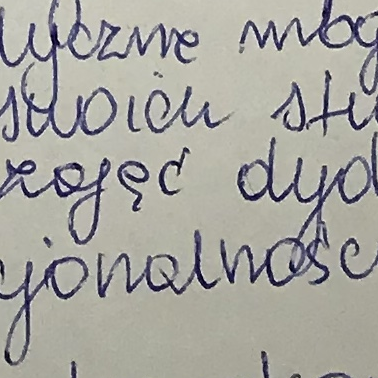 yczne mog
swoich stu
zajęć dyd
jonalnośc